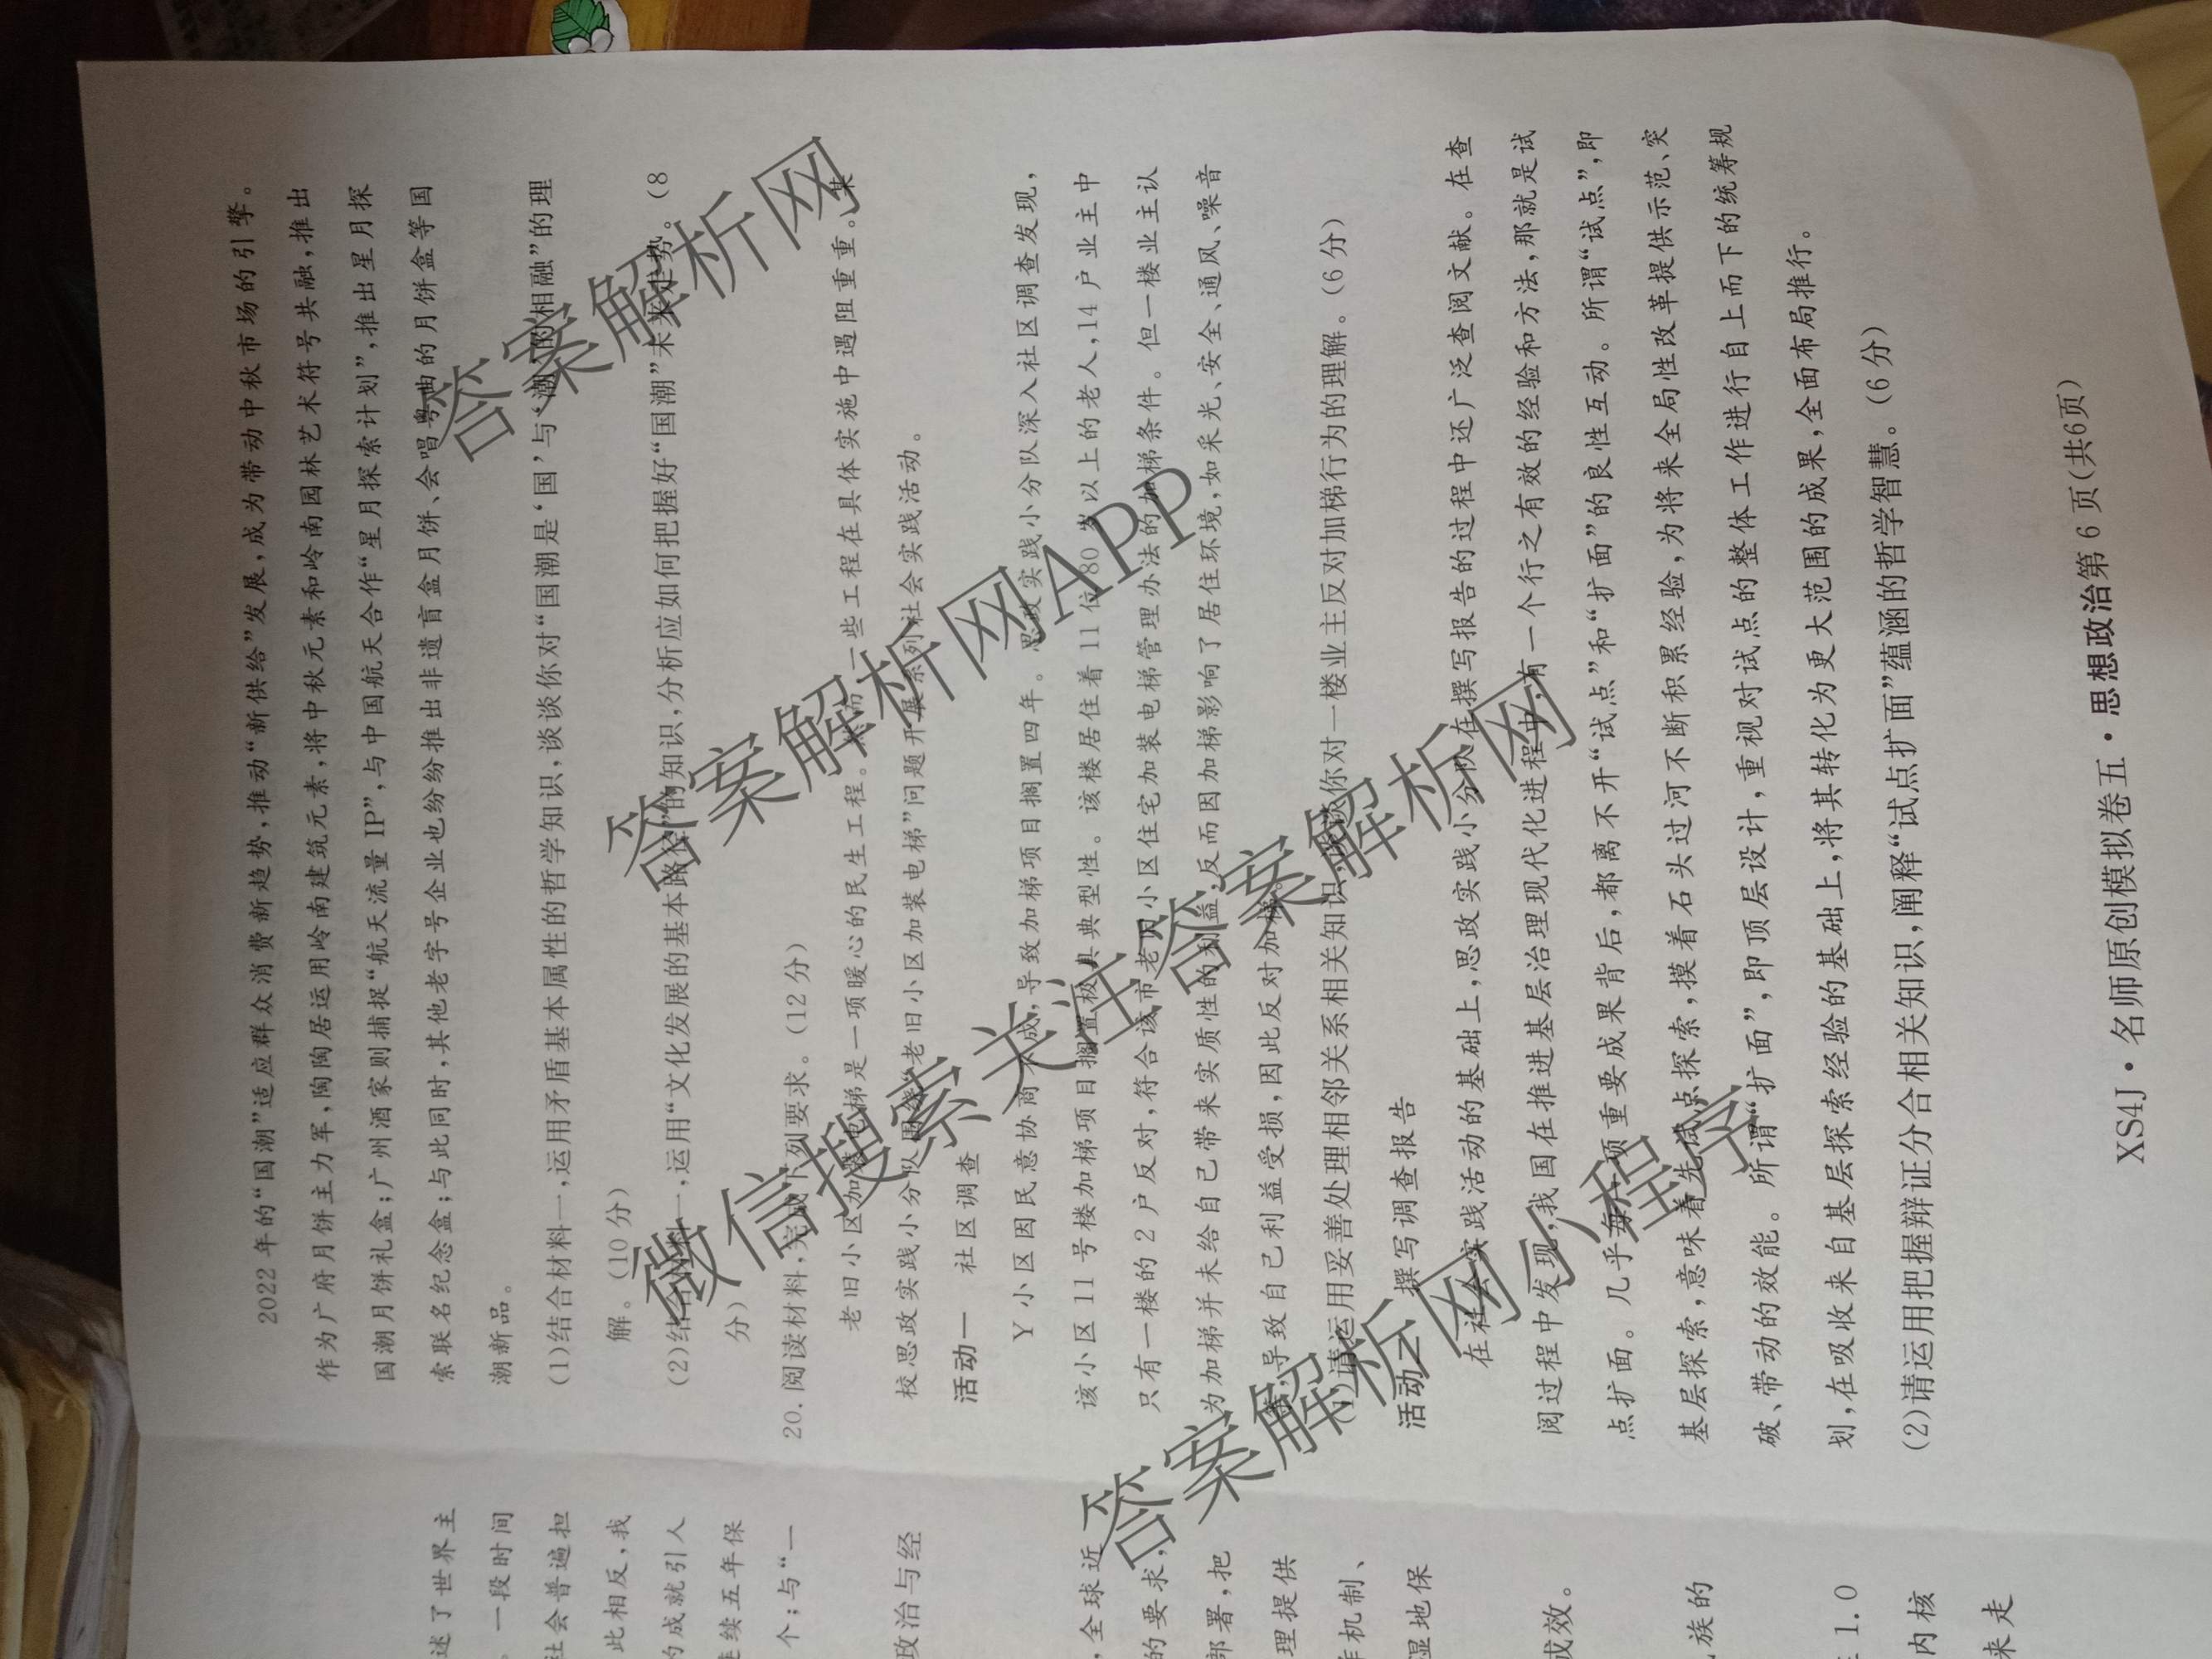 2022年的“国潮”适应群众消费新趋势,推动“新供给”发展,成为带动中秋市场的引擎。
作为广府月饼主力军,陶陶居运用岭南建筑元素,将中秋元素和岭南园林艺术符号共融,推出
国潮月饼礼盒;广州酒家则捕捉“航天流量IP”,与中国航天合作“星月探索计划”,推出星月探
索联名纪念盒;与此同时,其他老字号企业也纷纷推出非遗盲盒月饼、会唱粤曲的月饼盒等国
潮新品。
(1)结合材料一,运用矛盾基本属性的哲学知识,谈谈你对“国潮是‘国’与‘潮’的相融”的理
解。(10分)
(2)结合材料一,运用“文化发展的基本路径”的知识,分析应如何把握好“国潮”未来走势。(8
分)
20.阅读材料,完成下列要求。(12分)
老旧小区加装电梯是一项暖心的民生工程。然而一些工程在具体实施中遇阻重重。某
校思政实践小分队围绕“老旧小区加装电梯”问题开展系列社会实践活动。
活动一 社区调查
Y小区因民意协商不成,导致加梯项目搁置四年。思政实践小分队深入社区调查发现,
该小区11号楼加梯项目搁置极具典型性。该楼居住着11位80岁以上的老人,14户业主中
只有一楼的2户反对,符合该市老旧小区住宅加装电梯管理办法的加梯条件。但一楼业主认
为加梯并未给自己带来实质性的利益,反而因加梯影响了居住环境,如采光、安全、通风、噪音
等,导致自己利益受损,因此反对加梯。
(1)请运用妥善处理相邻关系相关知识,谈谈你对一楼业主反对加梯行为的理解。(6分)
活动二 撰写调查报告
在社会实践活动的基础上,思政实践小分队在撰写报告的过程中还广泛查阅文献。在查
阅过程中发现,我国在推进基层治理现代化进程中,有一个行之有效的经验和方法,那就是试
点扩面。几乎每一项重要成果背后,都离不开“试点”和“扩面”的良性互动。所谓“试点”,即
基层探索,意味着先试点探索,摸着石头过河不断积累经验,为将来全局性改革提供示范、突
破、带动的效能。所谓“扩面”,即顶层设计,重视对试点的整体工作进行自上而下的统筹规
划,在吸收来自基层探索经验的基础上,将其转化为更大范围的成果,全面布局推行。
(2)请运用把握辩证分合相关知识,阐释“试点扩面”蕴涵的哲学智慧。(6分)
XS4J·名师原创模拟卷五·思想政治第6页(共6页)
述了世界主
。一段时间
社会普遍担
此相反,我
的成就引人
连续五年保
个;与“一
政治与经
,全球近
的要求,
部署,把
理提供
作机制、
湿地保
成效。
族的
1.0
内核
来走
答案解析网
答案解析网APP
微信搜索关注答案解析网
答案解析网小程序